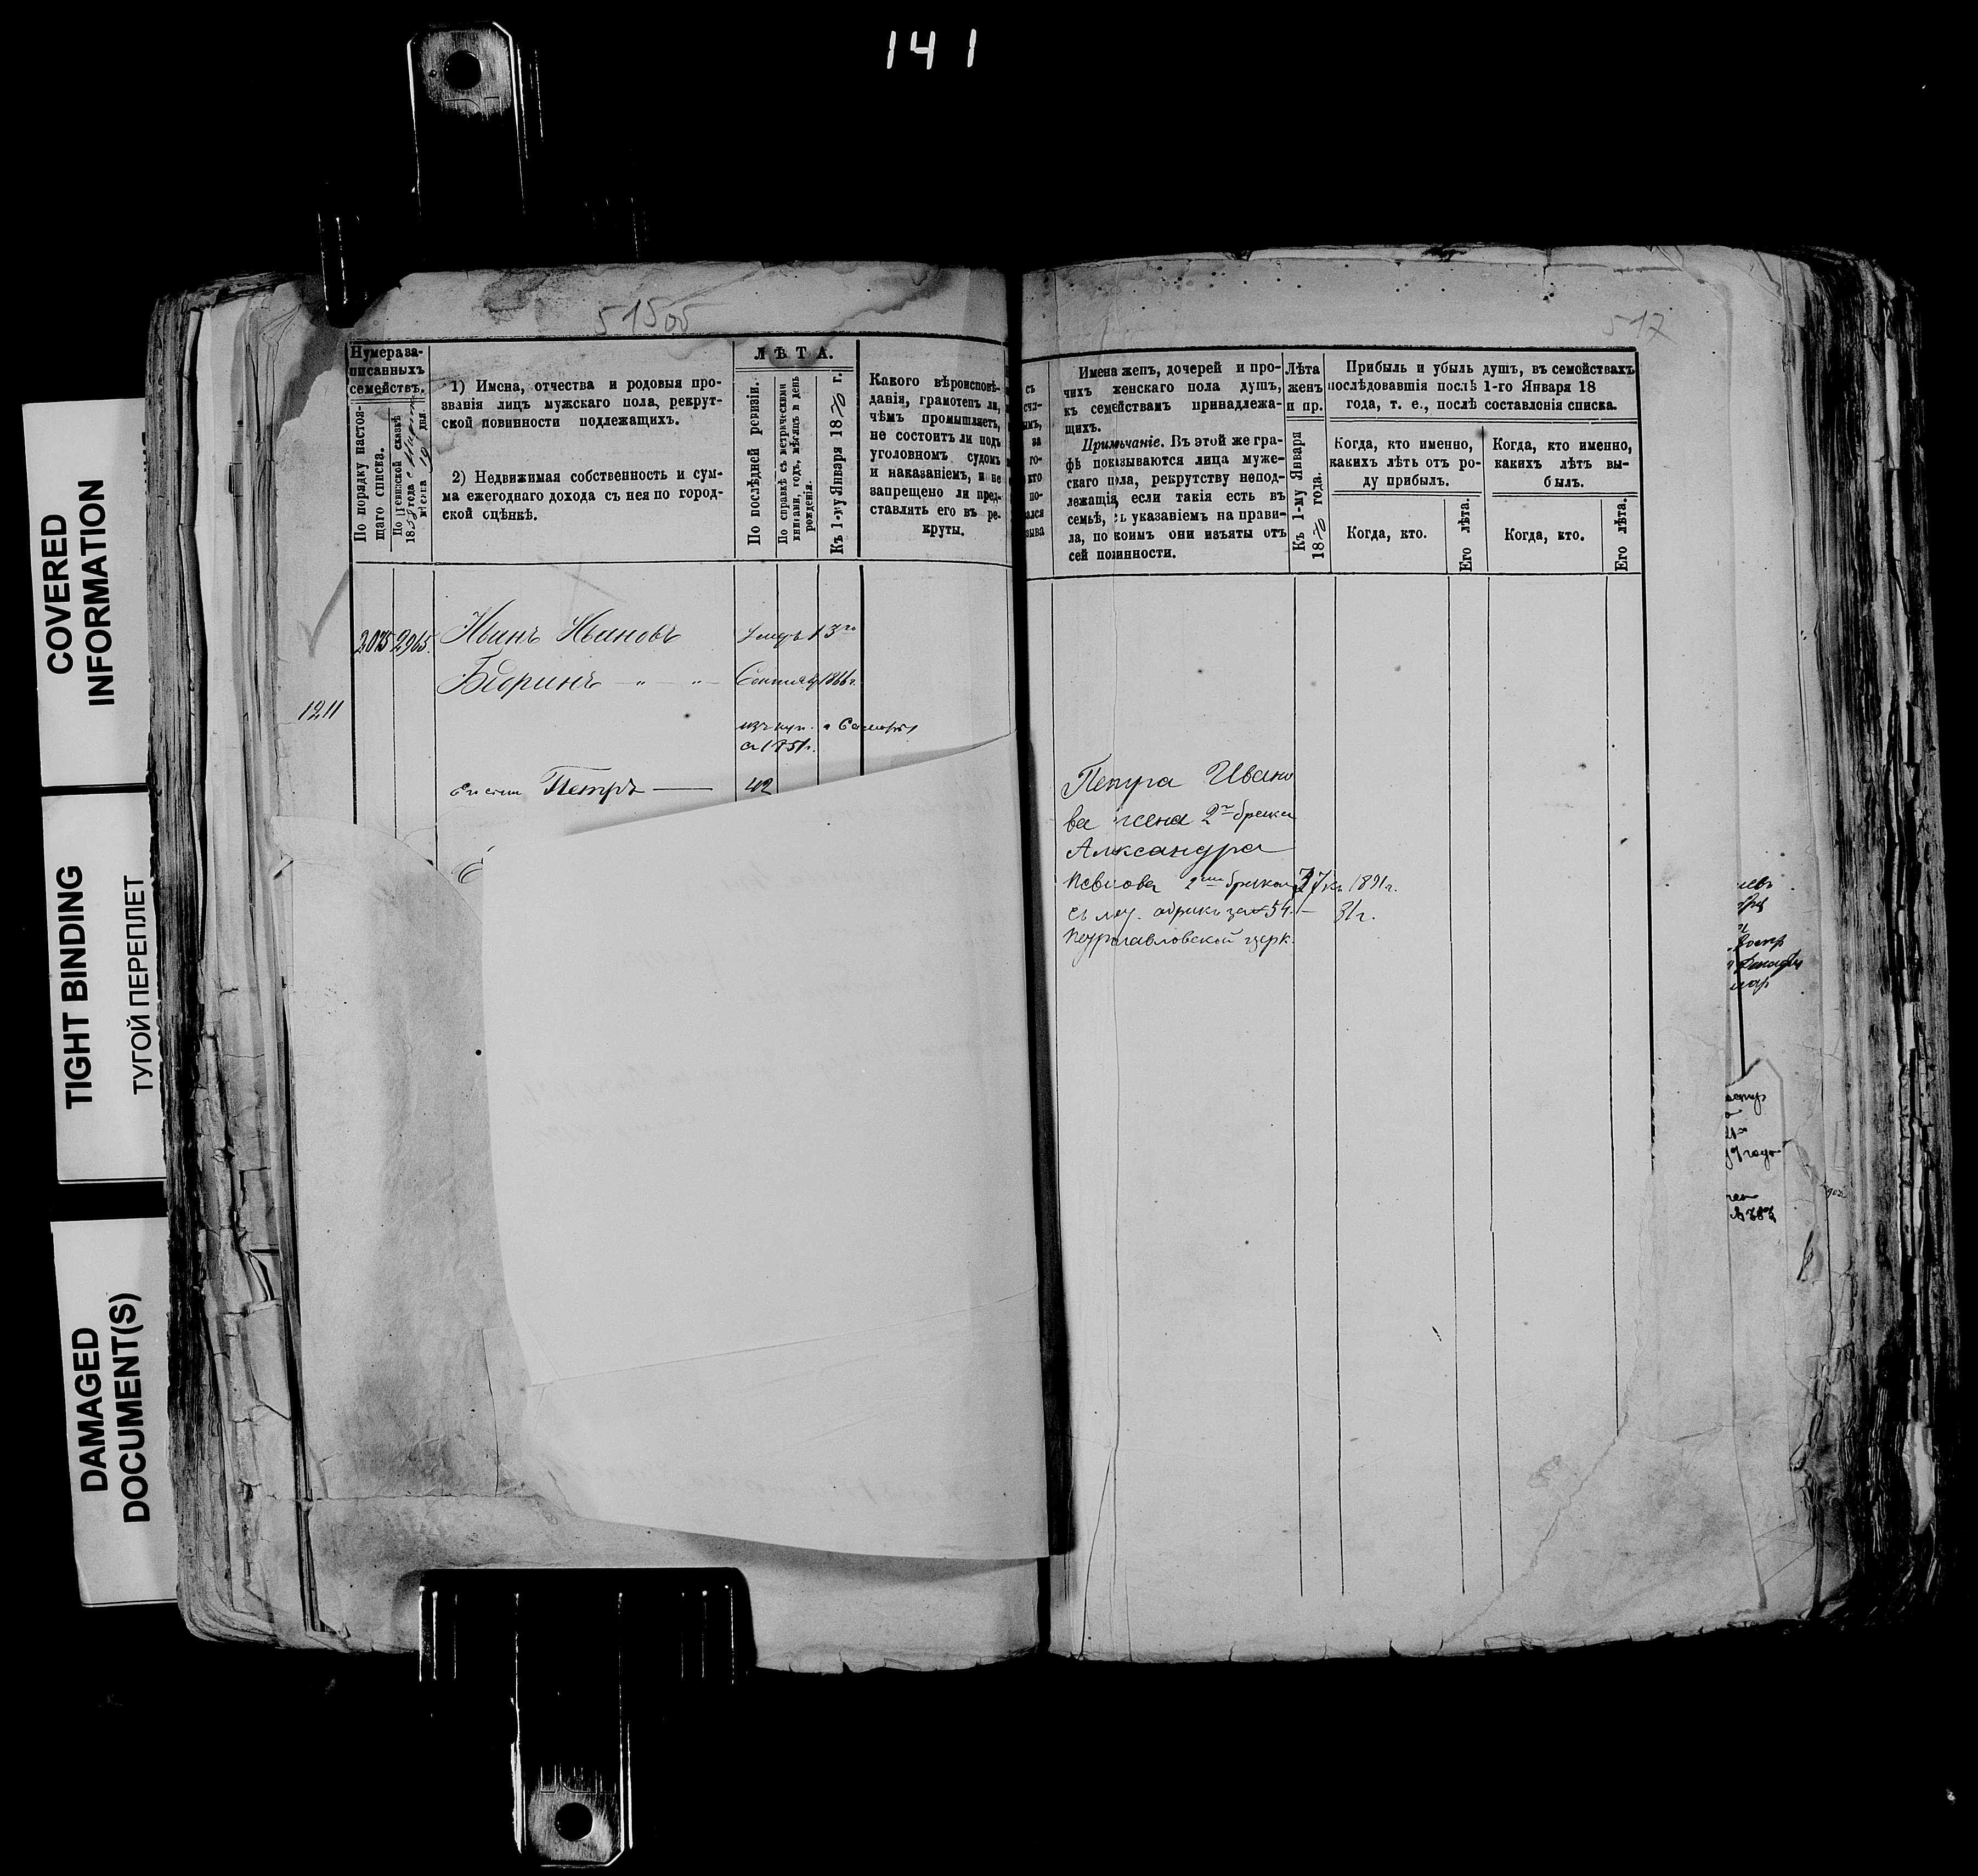 141
COVERED
INFORMATION
TIGHT BINDING
ТУГОЙ ПЕРЕПЛЕТ
DAMAGED
DOCUMENT(S)
515об
Нумера за-
писанныхъ
семействъ.
По порядку настоя-
щаго списка.
По ревизской сказкѣ
1858 года
мѣсяца 19 дня.
1) Имена, отчества и родовыя про-
званія лицъ мужскаго пола, рекрут-
ской повинности подлежащихъ.
2) Недвижимая собственность и сум-
ма ежегоднаго дохода съ нея по город-
ской оцѣнкѣ.
ЛѢТА.
По послѣдней ревизіи.
По справкѣ съ метрическими
книгами, годъ, мѣсяцъ и день
рожденія.
Къ 1-му Января 1870 г.
Какого вѣроисповѣ-
данія, грамотенъ ли,
чѣмъ промышляетъ,
не состоитъ ли подъ
уголовномъ судомъ
и наказаніемъ, и не
запрещено ли пред-
ставлять его въ ре-
круты.
2075 2965.
Иванъ Ивановъ
умеръ 13го
Бѣоринъ
Сентября 1866 г.
1211
г. Самары
1851г.
Петръ
42
517
Имена женъ, дочерей и про-
чихъ женскаго пола душъ,
къ семействамъ принадлежа-
щихъ.
Примѣчаніе. Въ этой же гра-
фѣ показываются лица муже-
скаго пола, рекрутству непод-
лежащія, если такія есть въ
семьѣ, съ указаніемъ на прави-
ла, по коимъ они изъяты отъ
сей повинности.
Лѣта
женъ
и пр.
Къ 1-му Января
1870 года.
Прибыль и убыль душъ, въ семействахъ
послѣдовавшія послѣ 1-го Января 18
года, т. е., послѣ составленія списка.
Когда, кто именно,
какихъ лѣтъ отъ ро-
ду прибылъ.
Когда, кто именно,
какихъ лѣтъ вы-
былъ.
Когда, кто.
Его лѣта.
Когда, кто.
Его лѣта.
Петра Ивано
ва жена 2го брака
Александра
37 къ 1891г.
54. — 31г.
Петропавловской церк.